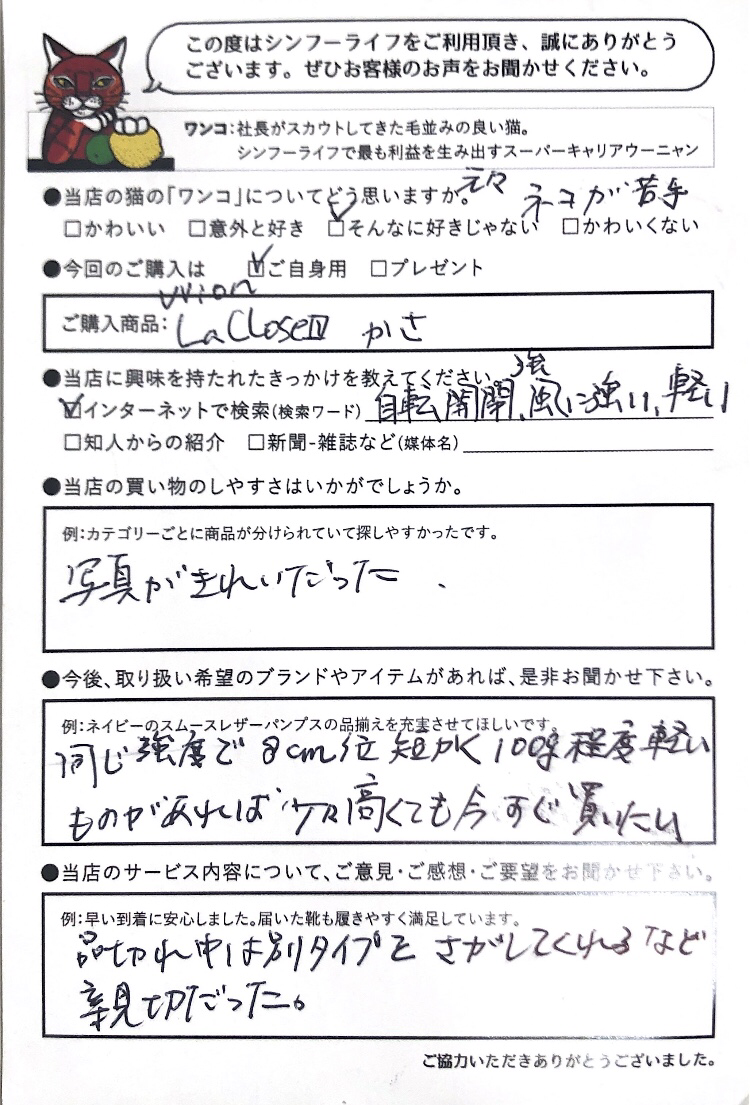 この度はシンフーライフをご利用頂き、誠にありがとう
ございます。ぜひお客様のお声をお聞かせください。
ワンコ：社長がスカウトしてきた毛並みの良い猫。
シンフーライフで最も利益を生み出すスーパーキャリアウーニャン
●当店の猫の「ワンコ」についてどう思いますか。元々 ネコが苦手
□かわいい □意外と好き ☑そんなに好きじゃない □かわいくない
●今回のご購入は ☑ご自身用 □プレゼント
ご購入商品： La CloseⅣ かさ
●当店に興味を持たれたきっかけを教えてください。
☑インターネットで検索(検索ワード) 自転 開閉、強風に強い、軽い
□知人からの紹介 □新聞-雑誌など(媒体名)
●当店の買い物のしやすさはいかがでしょうか。
例：カテゴリーごとに商品が分けられていて探しやすかったです。
写真がきれいだった
●今後、取り扱い希望のブランドやアイテムがあれば、是非お聞かせ下さい。
例：ネイビーのスムースレザーパンプスの品揃えを充実させてほしいです。
同じ強度で 8cm位 短かく 100g程度 軽い
ものがあれば 少々高くても 今すぐ 買いたい
●当店のサービス内容について、ご意見・ご感想・ご要望をお聞かせ下さい。
例：早い到着に安心しました。届いた靴も履きやすく満足しています。
品切れ中は別タイプを さがしてくれる など
親切だった。
ご協力いただきありがとうございました。